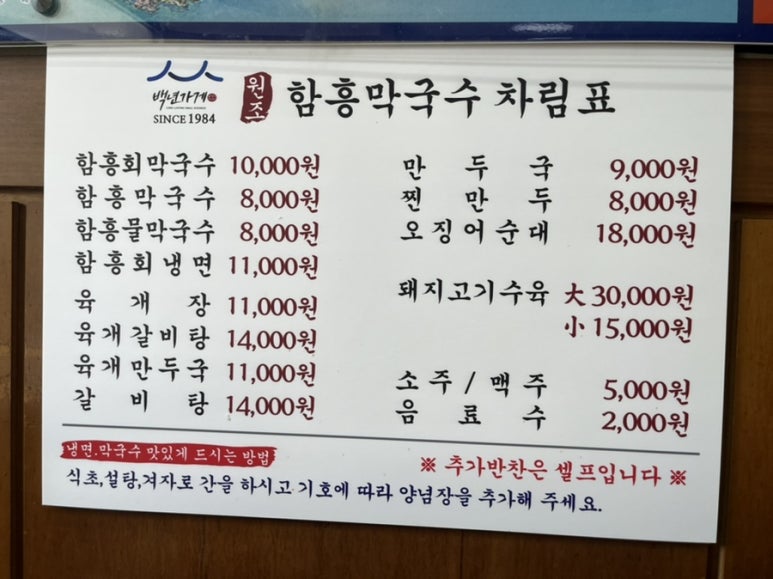 백년가게
SINCE 1984
원조 함흥막국수 차림표
함흥회막국수 10,000원
함흥막국수 8,000원
함흥물막국수 8,000원
함흥회냉면 11,000원
육개장 11,000원
육개갈비탕 14,000원
육개만두국 11,000원
갈비탕 14,000원
만두국 9,000원
찐만두 8,000원
오징어순대 18,000원
돼지고기수육 大 30,000원
小 15,000원
소주/맥주 5,000원
음료수 2,000원
냉면.막국수 맛있게 드시는 방법
※ 추가반찬은 셀프입니다 ※
식초,설탕,겨자로 간을 하시고 기호에 따라 양념장을 추가해 주세요.